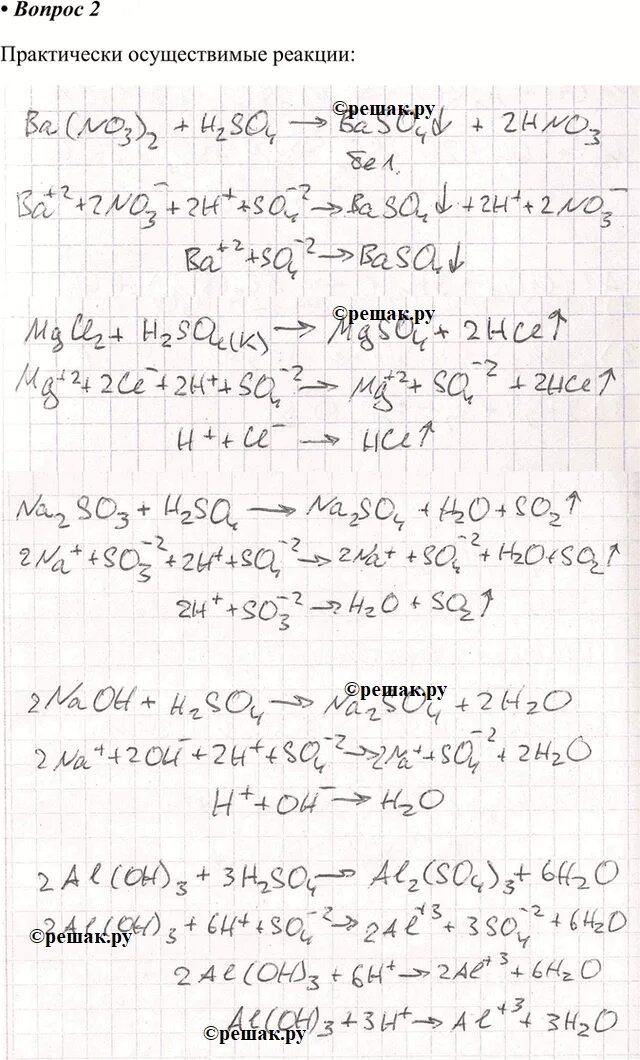 • Вопрос 2
Практически осуществимые реакции:
©решак.ру
Ba(NO3)2 + H2SO4 → BaSO4↓ + 2HNO3
бел.
Ba+2 + 2NO3- + 2H+ + SO4-2 → BaSO4↓ + 2H+ + 2NO3-
Ba+2 + SO4-2 → BaSO4↓
©решак.ру
MgCl2 + H2SO4(к) → MgSO4 + 2HCl↑
Mg+2 + 2Cl- + 2H+ + SO4-2 → Mg+2 + SO4-2 + 2HCl↑
H+ + Cl- → HCl↑
Na2SO3 + H2SO4 → Na2SO4 + H2O + SO2↑
2Na+ + SO3-2 + 2H+ + SO4-2 → 2Na+ + SO4-2 + H2O + SO2↑
2H+ + SO3-2 → H2O + SO2↑
©решак.ру
2NaOH + H2SO4 → Na2SO4 + 2H2O
2Na+ + 2OH- + 2H+ + SO4-2 → 2Na+ + SO4-2 + 2H2O
H+ + OH- → H2O
2Al(OH)3 + 3H2SO4 → Al2(SO4)3 + 6H2O
2Al(OH)3 + 6H+ + SO4-2 → 2Al+3 + 3SO4-2 + 6H2O
©решак.ру
2Al(OH)3 + 6H+ → 2Al+3 + 6H2O
Al(OH)3 + 3H+ → Al+3 + 3H2O
©решак.ру